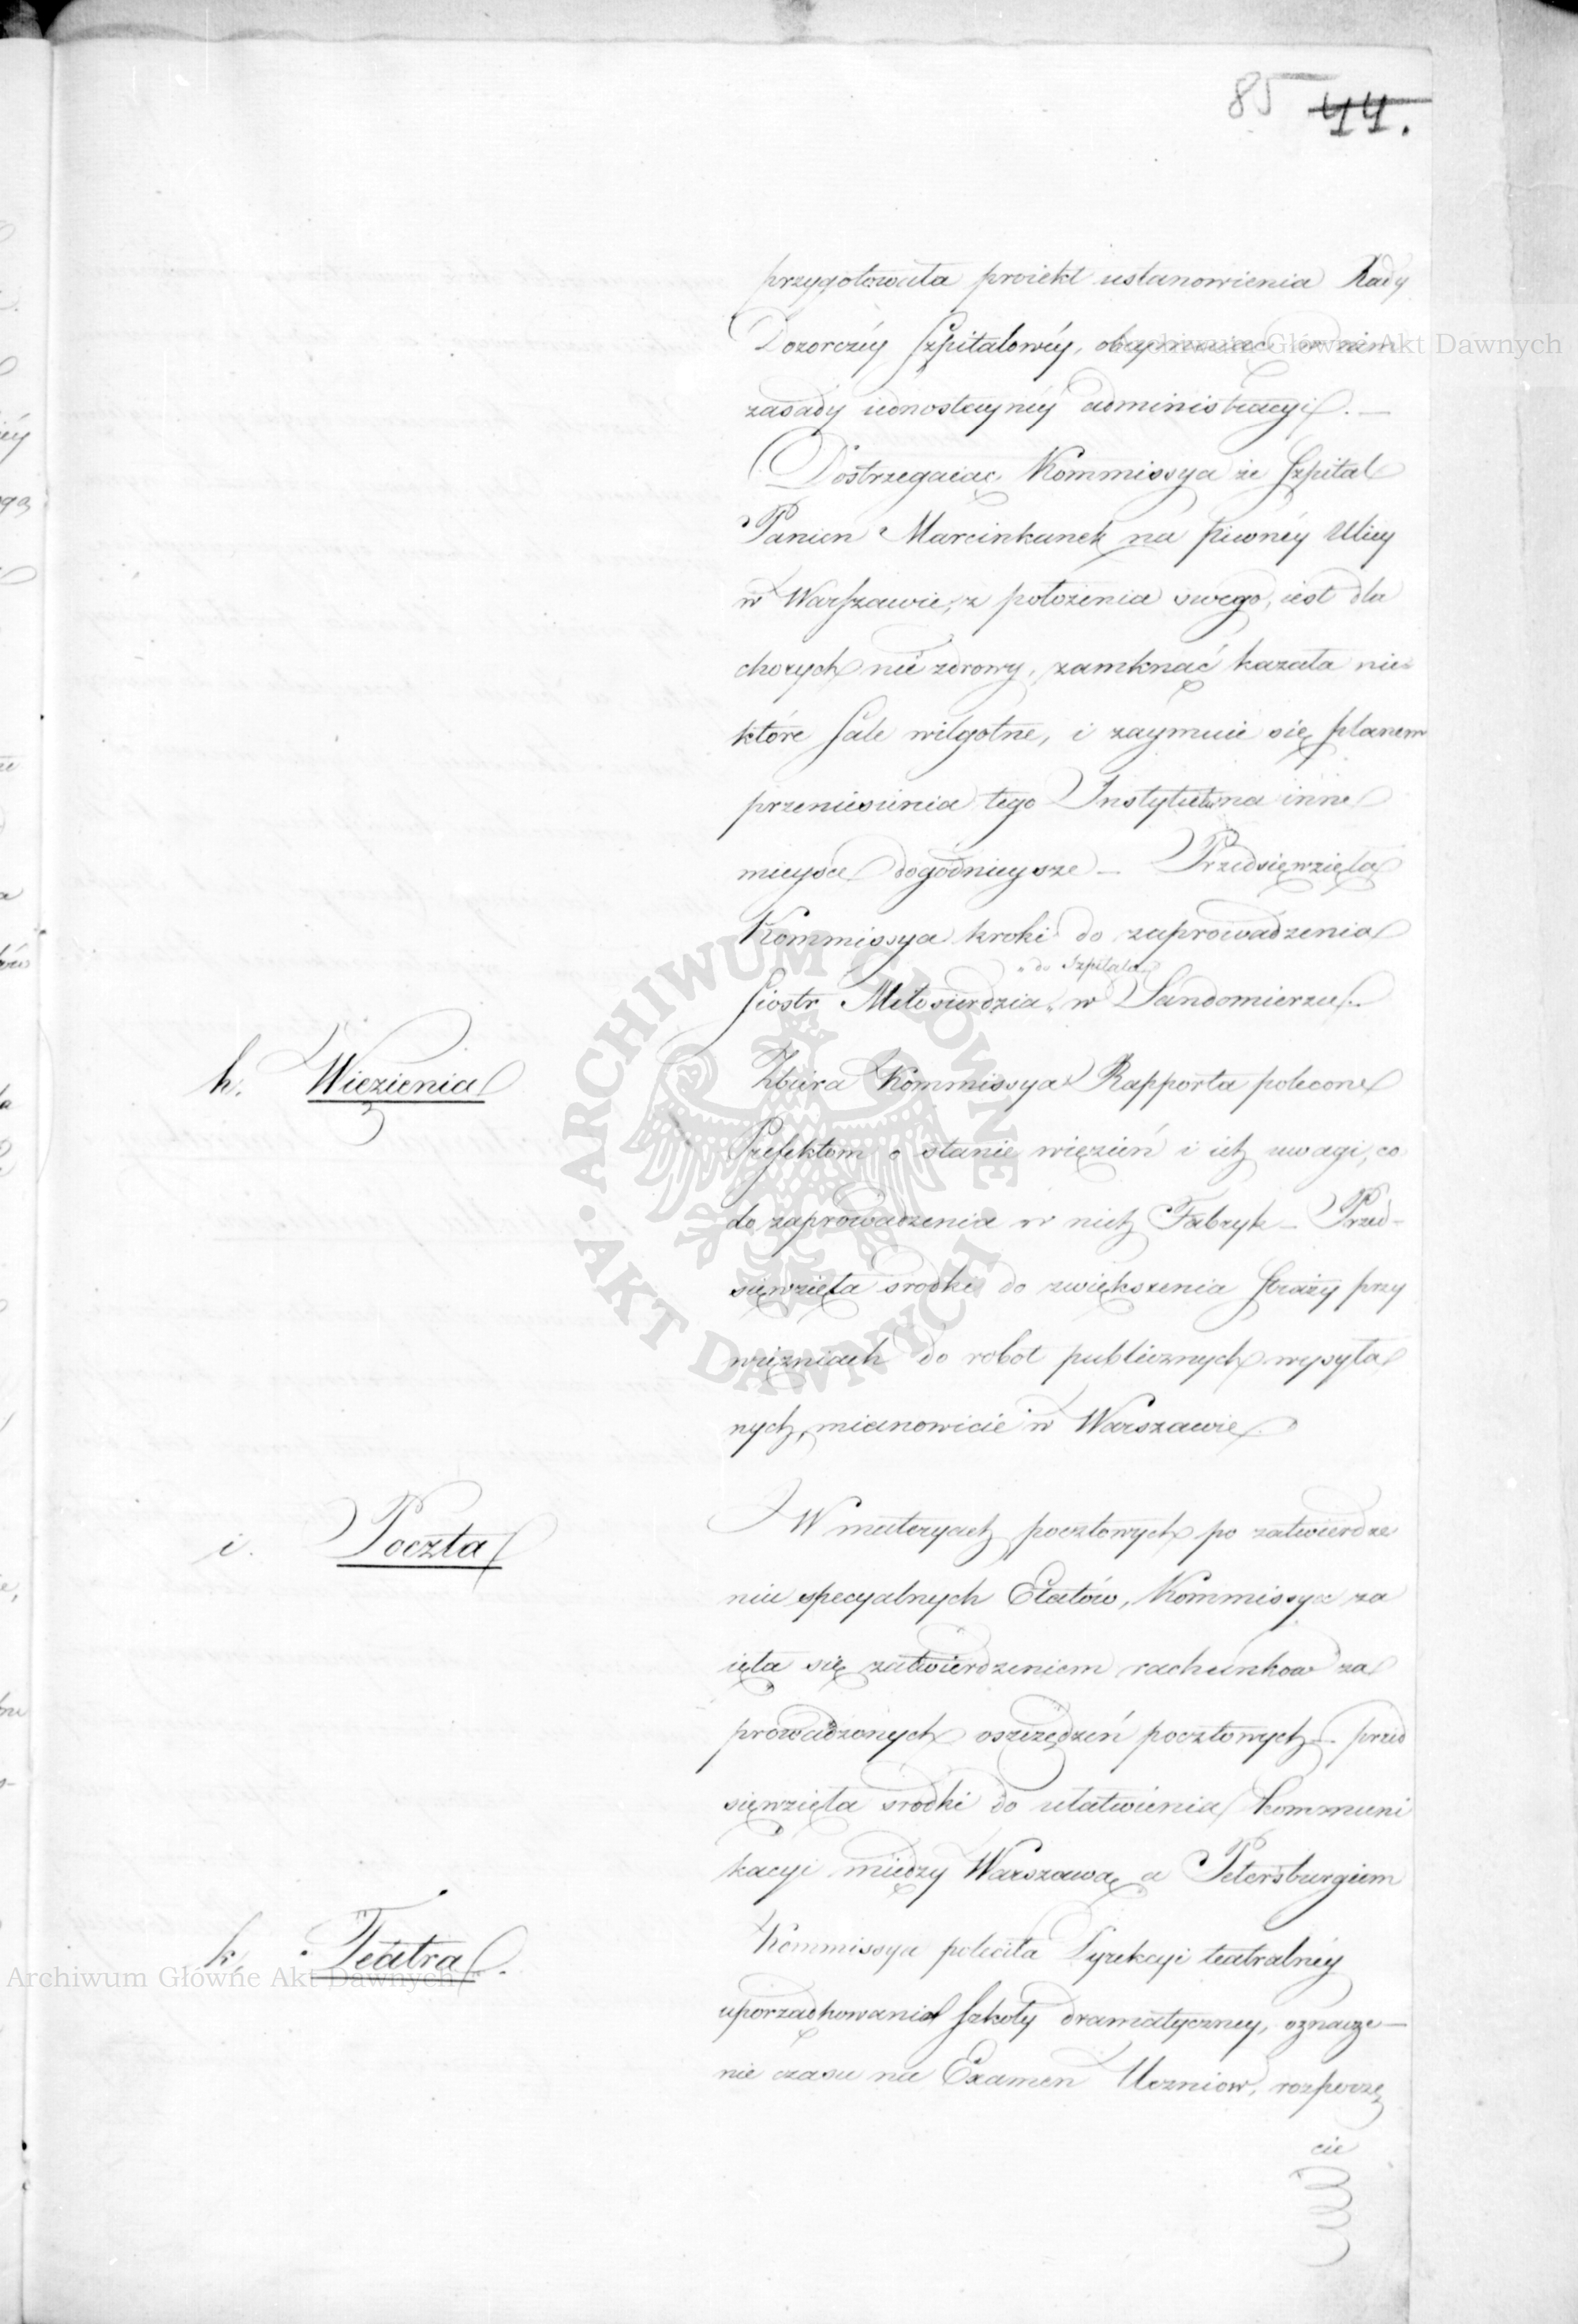 85 44.
przygotowała proiekt ustanowienia Rady
Dozorczéy Szpitalowéy, obeymuiąc w nim
zasady iednostaynéy administracyi. —
Dostrzegaiąc Kommissya że Szpital
Panien Marcinkanek na piwnéy Ulicy
w Warszawie, z położenia swego, iest dla
chorych nie zdrowy, zamknąć kazała nie-
które Sale wilgotne, i zaymuie się planem
przeniesienia tego Instytutu na inne
mieysce dogodnieysze — Przedsięwzięła
Kommissya kroki do zaprowadzenia
do Szpitala
Siostr Miłosierdzia w Sandomierzu.
h. Więzienia
Zbiera Kommissya Rapporta polecone
Prefektom o stanie więzień i ich uwagi, co
do zaprowadzenia w nich Fabryk — Przed-
sięwzięła srodki do zwiększenia Straży przy
więzniach do robot publicznych wysyła
nych, mianowicie w Warszawie.
i. Poczta
W materyach pocztowych po zatwierdze
niu specyalnych Etatów, Kommissya za
ięła się zatwierdzeniem rachunkow za
prowadzonych oszczędzeń pocztowych — przed
sięwzięła srodki do ułatwienia kommuni
kacyi między Warszawą a Petersburgiem
k. Teatra.
Kommissya poleciła Dyrekcyi teatralnéy
uporządkowanie Szkoły dramatyczney, oznacze —
nie czasu na Examen Uczniow, rozpoczę
cie
Archiwum Główne Akt Dawnych
Archiwum Główne Akt Dawnych
ARCHIWUM GŁÓWNE • AKT DAWNYCH •